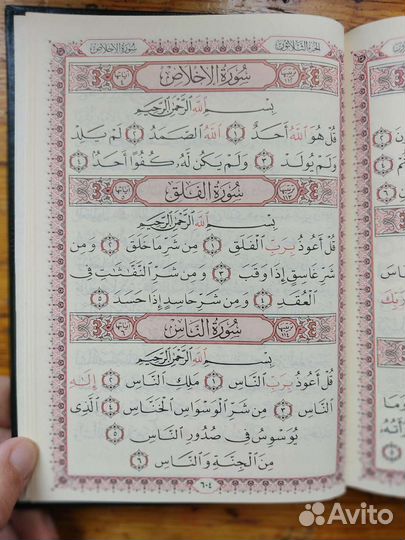 سورة الإخلاص الجزء الثلاثون
سورة الإخلاص
بسم الله الرحمن الرحيم
قُلْ هُوَ اللَّهُ أَحَدٌ ١ اللَّهُ الصَّمَدُ ٢ لَمْ يَلِدْ
وَلَمْ يُولَدْ ٣ وَلَمْ يَكُن لَّهُ كُفُوًا أَحَدٌ ٤
سورة الفلق
بسم الله الرحمن الرحيم
قُلْ أَعُوذُ بِرَبِّ الْفَلَقِ ١ مِن شَرِّ مَا خَلَقَ ٢ وَمِن
شَرِّ غَاسِقٍ إِذَا وَقَبَ ٣ وَمِن شَرِّ النَّفَّٰثَٰتِ فِي
الْعُقَدِ ٤ وَمِن شَرِّ حَاسِدٍ إِذَا حَسَدَ ٥
سورة الناس
بسم الله الرحمن الرحيم
قُلْ أَعُوذُ بِرَبِّ النَّاسِ ١ مَلِكِ النَّاسِ ٢ إِلَٰهِ
النَّاسِ ٣ مِن شَرِّ الْوَسْوَاسِ الْخَنَّاسِ ٤ الَّذِي
يُوَسْوِسُ فِي صُدُورِ النَّاسِ ٥
مِنَ الْجِنَّةِ وَالنَّاسِ ٦
٦٠٤
Avito